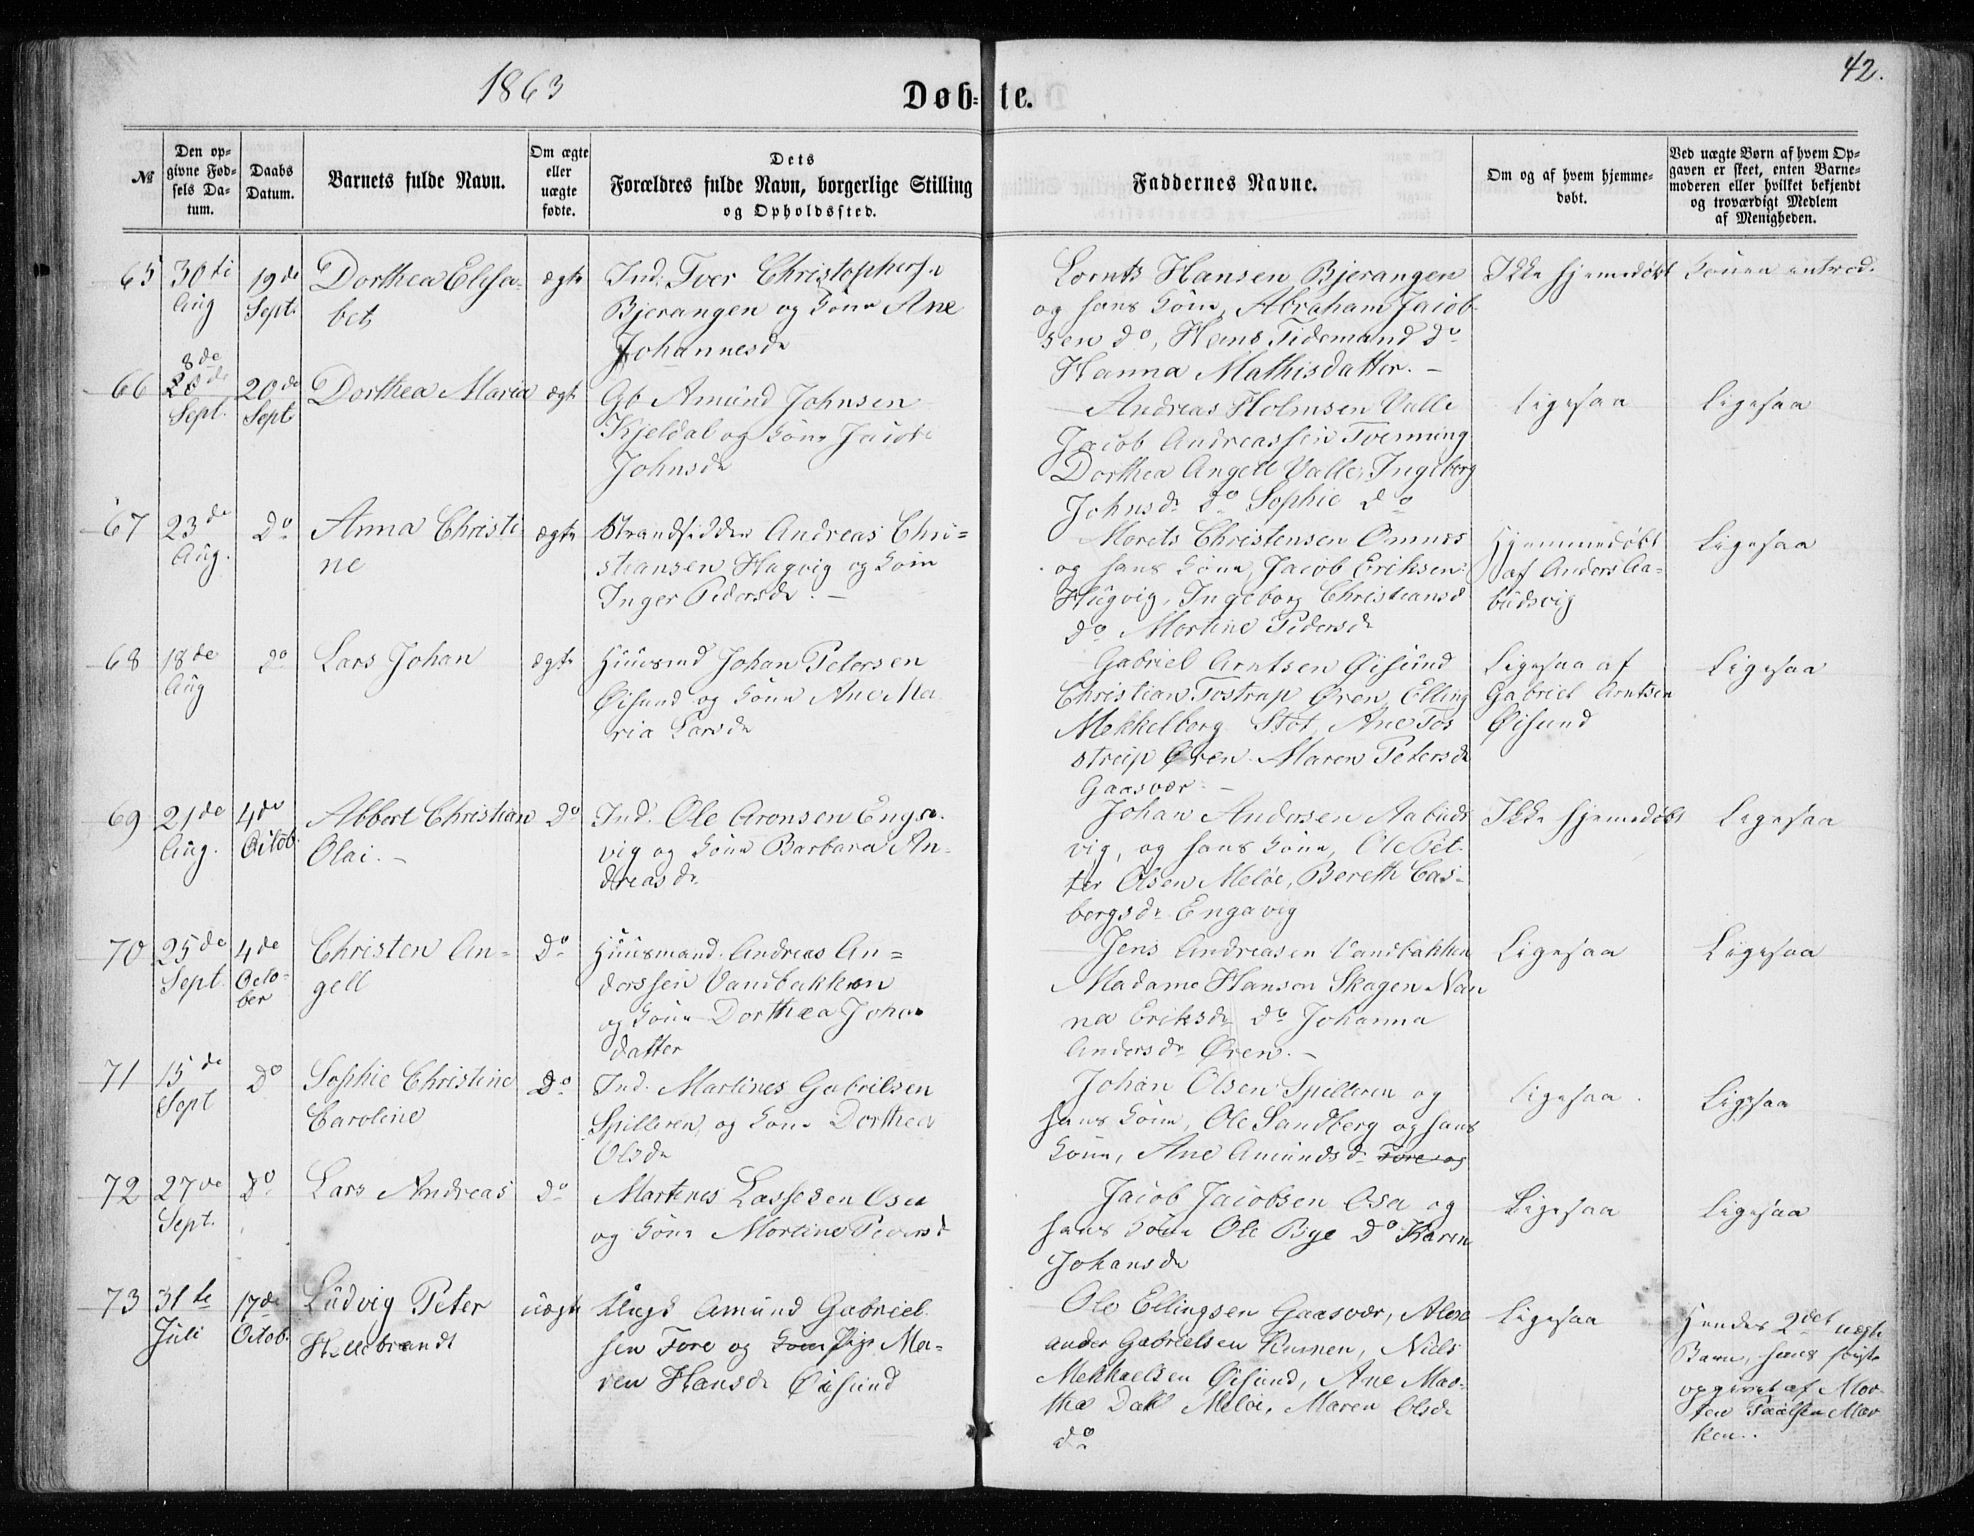 1863
Døb-te.
42.
№
Den op-
givne Fød-
sels Da-
tum.
Daabs
Datum.
Barnets fulde Navn.
Om ægte
eller
uægte
fødte.
Dets
Forældres fulde Navn, borgerlige Stilling
og Opholdssted.
Faddernes Navne.
Om og af hvem hjemme-
døbt.
Ved uægte Børn af hvem Op-
gaven er skeet, enten Barne-
moderen eller hvilket bekjendt
og troværdigt Medlem
af Menigheden.
65
30te
Aug
19de
Sept.
Dorthea Elisa-
bet
ægte
Ind. Iver Christophers.
Bjerangen og Kone Ane
Johannesdr
Lornts Hansen Bjerangen
og hans Kone, Abraham Jacob
sen do, Hans Tidemand do
Hanna Mathisdatter. –
Ikke hjemedøbt
Konen introd.
66
8de
Sept.
20de
Sept
Dorthea Maria
ægt.
Gb Amund Johnsen
Kjeldal og Kone Jacob
Johnsdr
Andreas Holmsen Valle
Jacob Andreassen Tverming
Dorthea Angell Valle, Ingeborg
Johnsdr do Sophie do
Ligesaa
Ligesaa
67
23de
Aug.
Do
Anna Christi
ne
ægte
Strandsidder Andreas Chri=
stiansen Hagvig og Kone
Inger Pedersdr. –
Morits Christensen Omnes
og hans Kone, Jacob Eriksen
Hugvig, Ingeborg Christiansd
do Martine Pedersdr
Hjemmedøbt
af Anders Aa-
budsvig
Ligesaa
68
18de
Aug
do
Lars Johan
ægte
Huusmd Johan Petersen
Øisund og Kone Ane Ma
ria Larsdr
Gabriel Arntsen Øisund
Christian Tostrup Øren, Elling
Mekkelborg Stot, Ane Tos
strup Øren. Maren Petersdr
Gaasvær. –
Ligesaa af
Gabriel Arntsen
Øisund
Ligesaa
69
21de
Aug.
4de
Octob.
Albert Christian
Olai. –
Do
Ind. Ole Aronsen Enga.
vig og Kone Barbara An-
dreasdr
Johan Andersen Aabuds
vig, og hans Kone, Ole Pet
ter Olsen Meløe, Bereth Cas-
bergsdr Engavig
Ikke hjemedøbt
Ligesaa
70
25de
Sept
4de
Octo-
ber
Christen An-
gell
Do
Huusmand. Andreas An=
derssen Vandbakken
og Kone Dorthea Johan
datter
Jens Andreasen Vandbakken
Madame Hanson Skagen Nan
na Eriksdr do Johanna
Andersdr Øren. –
Ligesaa
Ligesaa
71
15de
Sept
Do
Sophie Christine
Caroline
Do
Ind. Martines Gabrielsen
Spilderen, og Kone Dorthea
Olsdr
Johan Olsen Spilderen og
hans Kone, Ole Sandberg og hans
Kone, Ane Amundsdr Fore og
Ligesaa
Ligesaa
72
27de
Sept.
Do
Lars Andreas
do
Martines Lassesen Osa
og Kone Martine Pedersd
Jacob Jacobsen Osa og
hans Kone Ole Bye do Karen
Johansdr
Ligesaa
Ligesaa
73
31te
Juli
17de
Octob.
Ludvig Peter
Hillebrandt
uægte
Ungk Amund Gabriel
sen Fore og Kone Pige Ma-
ren Hansdr Øisund
Ole Ellingsen Gaasvær, Alex
ander Gabrielsen Kunnen, Niels
Mekkaelsen Øisund, Ane Mar-
tha Dahl Meløe, Maren Olsdr
do
Ligesaa
Hendes 2det uægte
Barn, hans første
opgivet af Mor-
ten Paalsen Mar
ken.